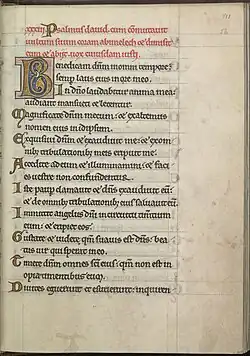 xxxiii Psalmus david cum comutauit
uultum suum coram abimelech et dimisit
eum et abiit uox eiusdem
Benedicam dñm in omni tempore:
semp laus eius in ore meo.
In dño laudabitur anima mea:
audiant mansueti et letentur.
Magnificate dñm mecum: et exaltemus
nomen eius in idipsum.
Exquisiui dñm et exaudiuit me: et ex om
nibus tribulationibus meis eripuit me.
Accedite ad eum et illuminamini: et faci
es uestre non confundentur.
Iste paup clamauit et dñs exaudiuit eum:
et de omnibus tribulationibus eius saluauit eum.
Immittet angelus dñi in circuitu timentium
eum: et eripiet eos.
Gustate et uidete qm suauis est dñs: bea
tus uir qui sperat in eo.
Timete dñm omnes sci eius: qm non est in
opia timentibus eum.
Diuites eguerunt et esurierunt: inquiren